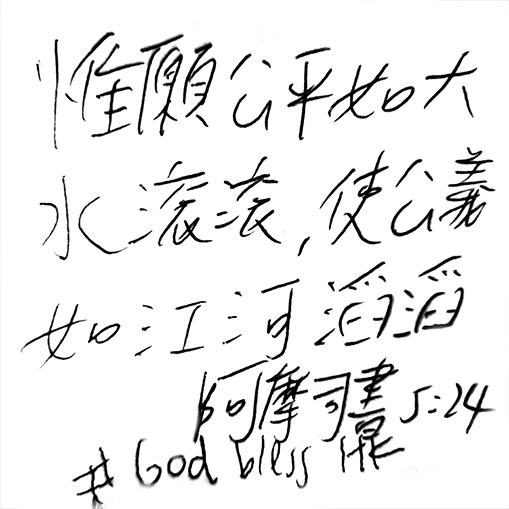 惟願公平如大
水滾滾,使公義
如江河滔滔
阿摩司書 5:24
# God bless HK